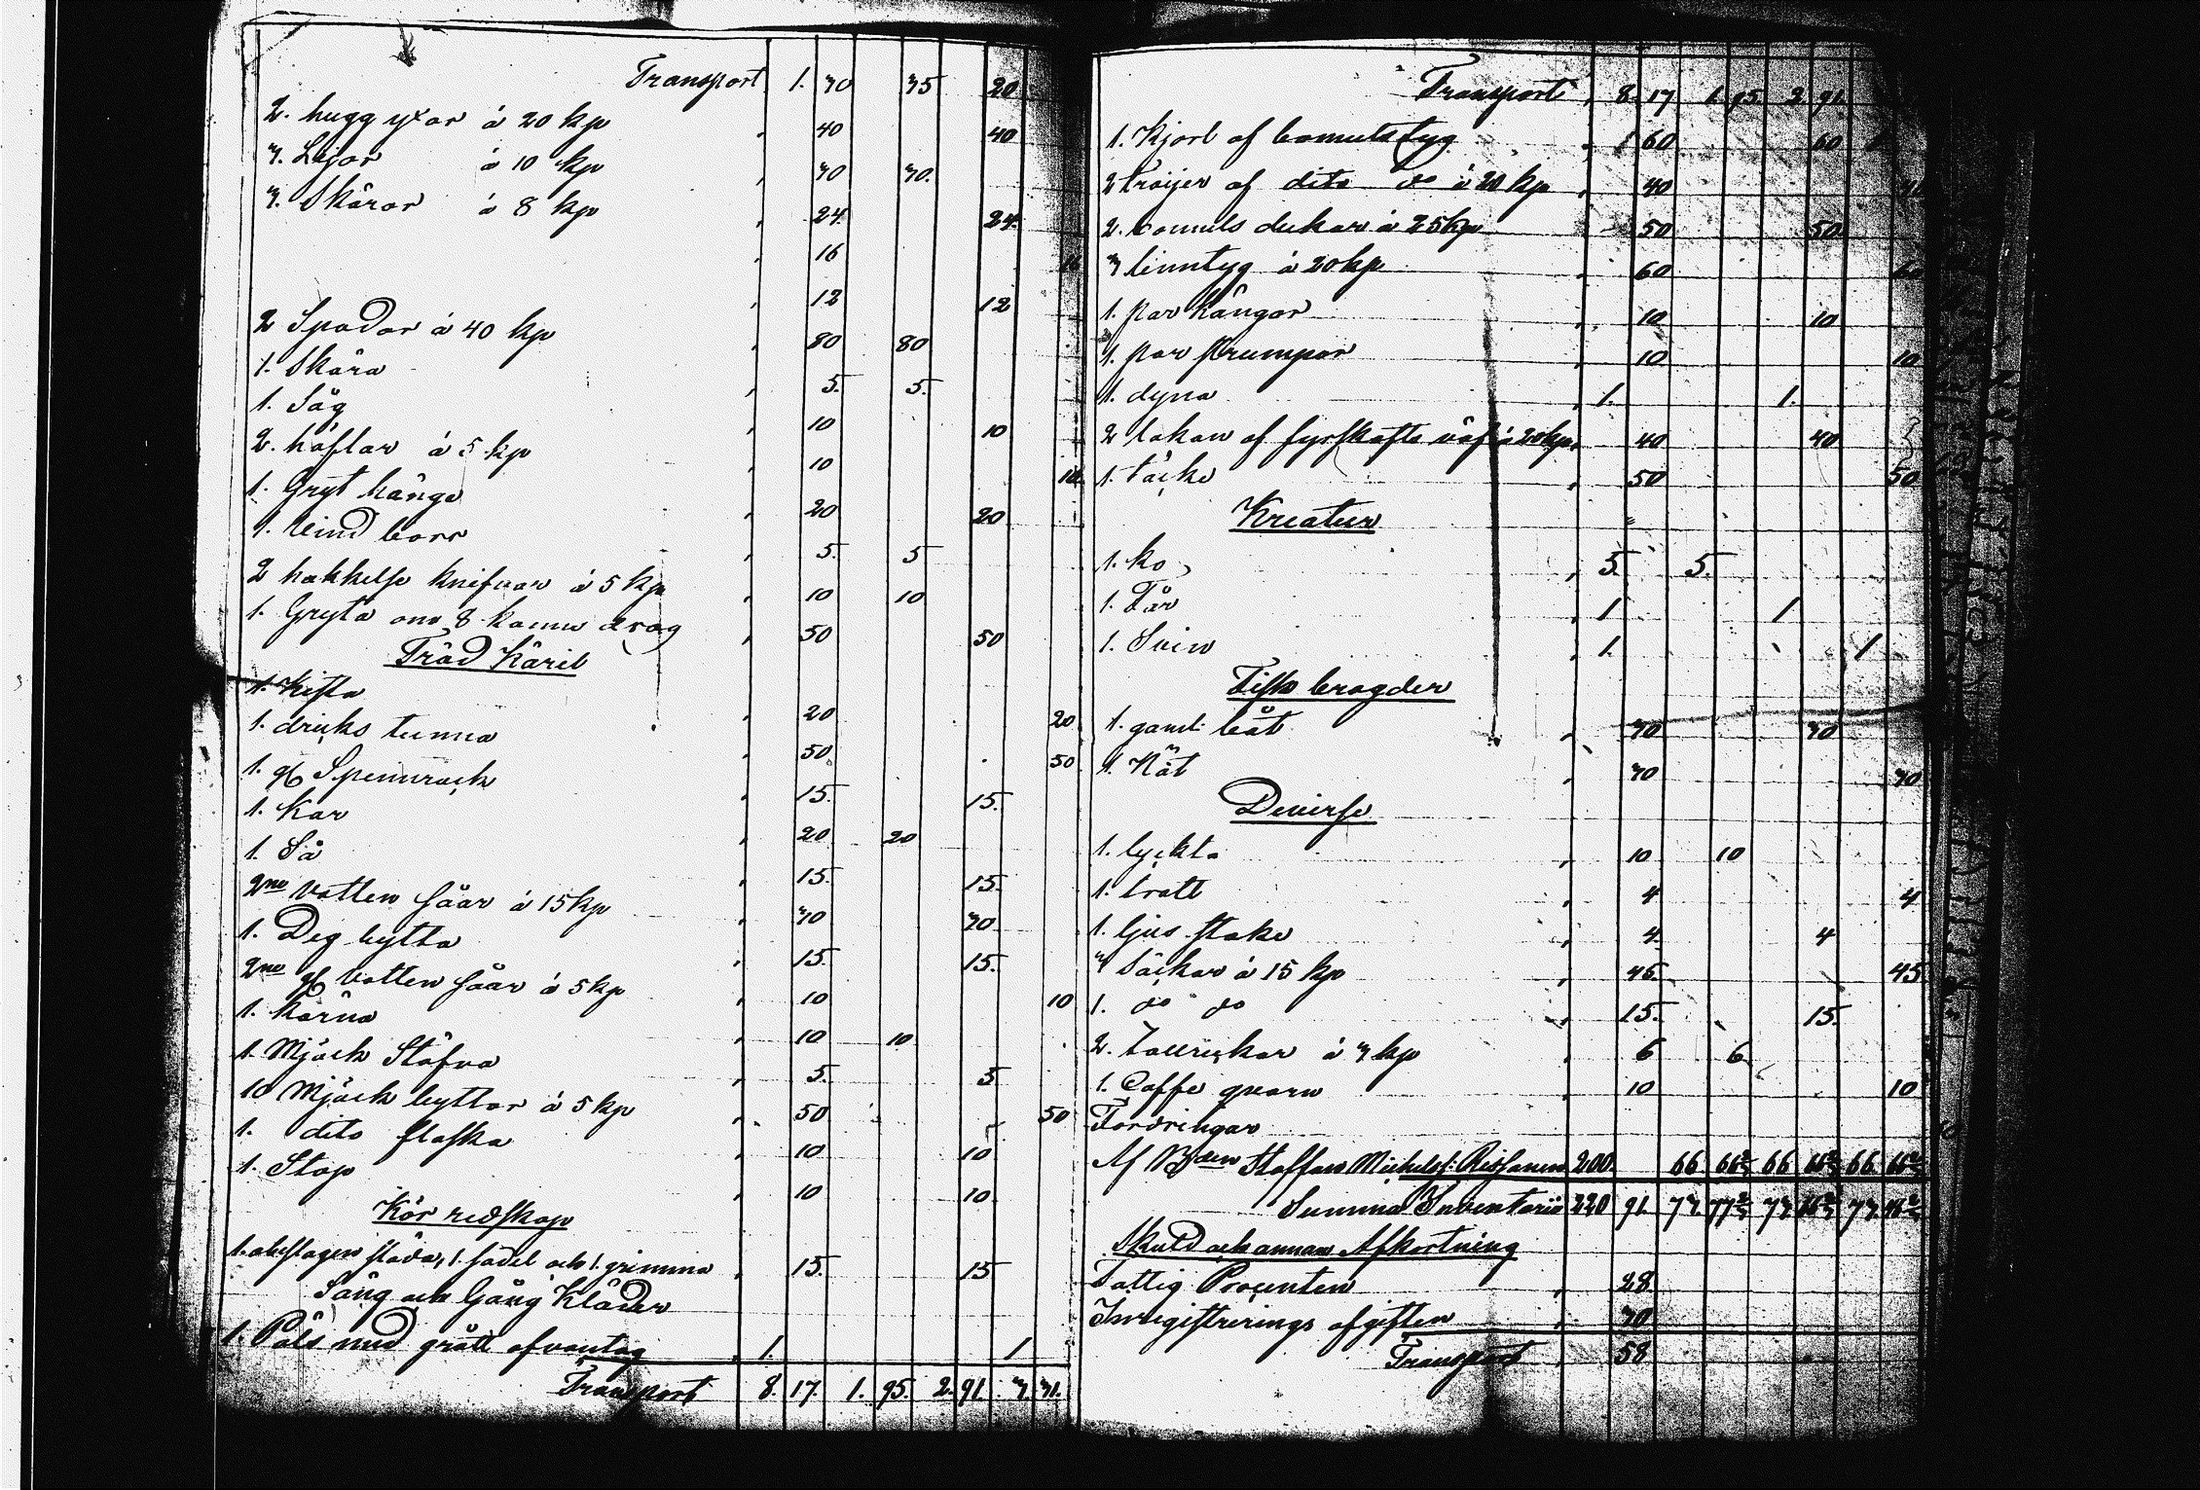 Transport 1. 30 35 20
2. hugg yxor á 20 kp 40 40
3. Lijor á 10 kp 30 30.
3. Skäror á 8 kp 24. 24.
16 16
12 12
2 Spador á 40 kp 80 80
1. Skära 5. 5.
1. Såg 10 10
2. häflar á 5 kp 10 10
1. Gryt hänge 20 20
1. Vind borr 5. 5
2 hakkelse knifvar á 5 kp 10 10
1. Gryta om 8 kannu drag 50 50
Träd Käril
1. Kista 20 20
1. dricks tunna 50 50
1. Spennrack 15. 15.
1. Kar 20 20
1. Så 15. 15.
2ne vatten såar á 15 kp 30 30
1. Deg bytta 15. 15.
2ne vatten såar á 5 kp 10 10
1. Kärna 10 10
1. Mjöck Stäfva 5. 5
10 Mjöck byttor á 5 kp 50 50
1. dito flaska 10 10
1. Stop 10 10
Kör redskap
1. obeslagen släda, 1. sadel och 1. grimma 15. 15
Säng och Gång Kläder
1. Päls med grått ofvantag 1. 1
Transport 8. 17. 1. 95. 2. 91 3. 31.
Transport 8. 17 1. 95 2. 91
1. Kjorl af bomulstyg 60 60
2 tröijer af dito do á 20 kp 40
2. bomuls dukar á 25 kp 50 50
3 linntyg á 20 kp 60
1. par kängor 10 10
1. par strumpor 10 10
1. dyna 1. 1.
2 lakan af fyrskafts väf á 20 kp 40 40
1. täcke 50 50
Kreatur
1. ko 5. 5.
1. Får 1 1
1. Svin 1. 1
Fisk bragder
1. gaml: båt 30 30
1. Nät 30 30
Diverse
1. lyckta 10 10
1. tratt 4 4
1. ljus stake 4. 4
3 säckar á 15 kp 45. 45
1. do do 15. 15.
2. Tallrickar á 3 kp 6 6
1. Caffe qvarn 10 10
Fordringar
Af Bden Staffan Michelss: Reissanen 200. 66 66⅔ 66 66⅔ 66 66⅔
Summa Inventarii 220 91. 73. 77⅔ 73. 66⅔ 73.
Skuld och annan Afkortning
Fattig Procenten 28.
Inregistrerings afgiften 30.
Transport 58